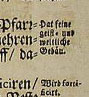 Pfarr= Dat seine
ehren= geist= und
weltliche
ff/ da= Gebäu.
iciren/ Wird forti-
ficirt.